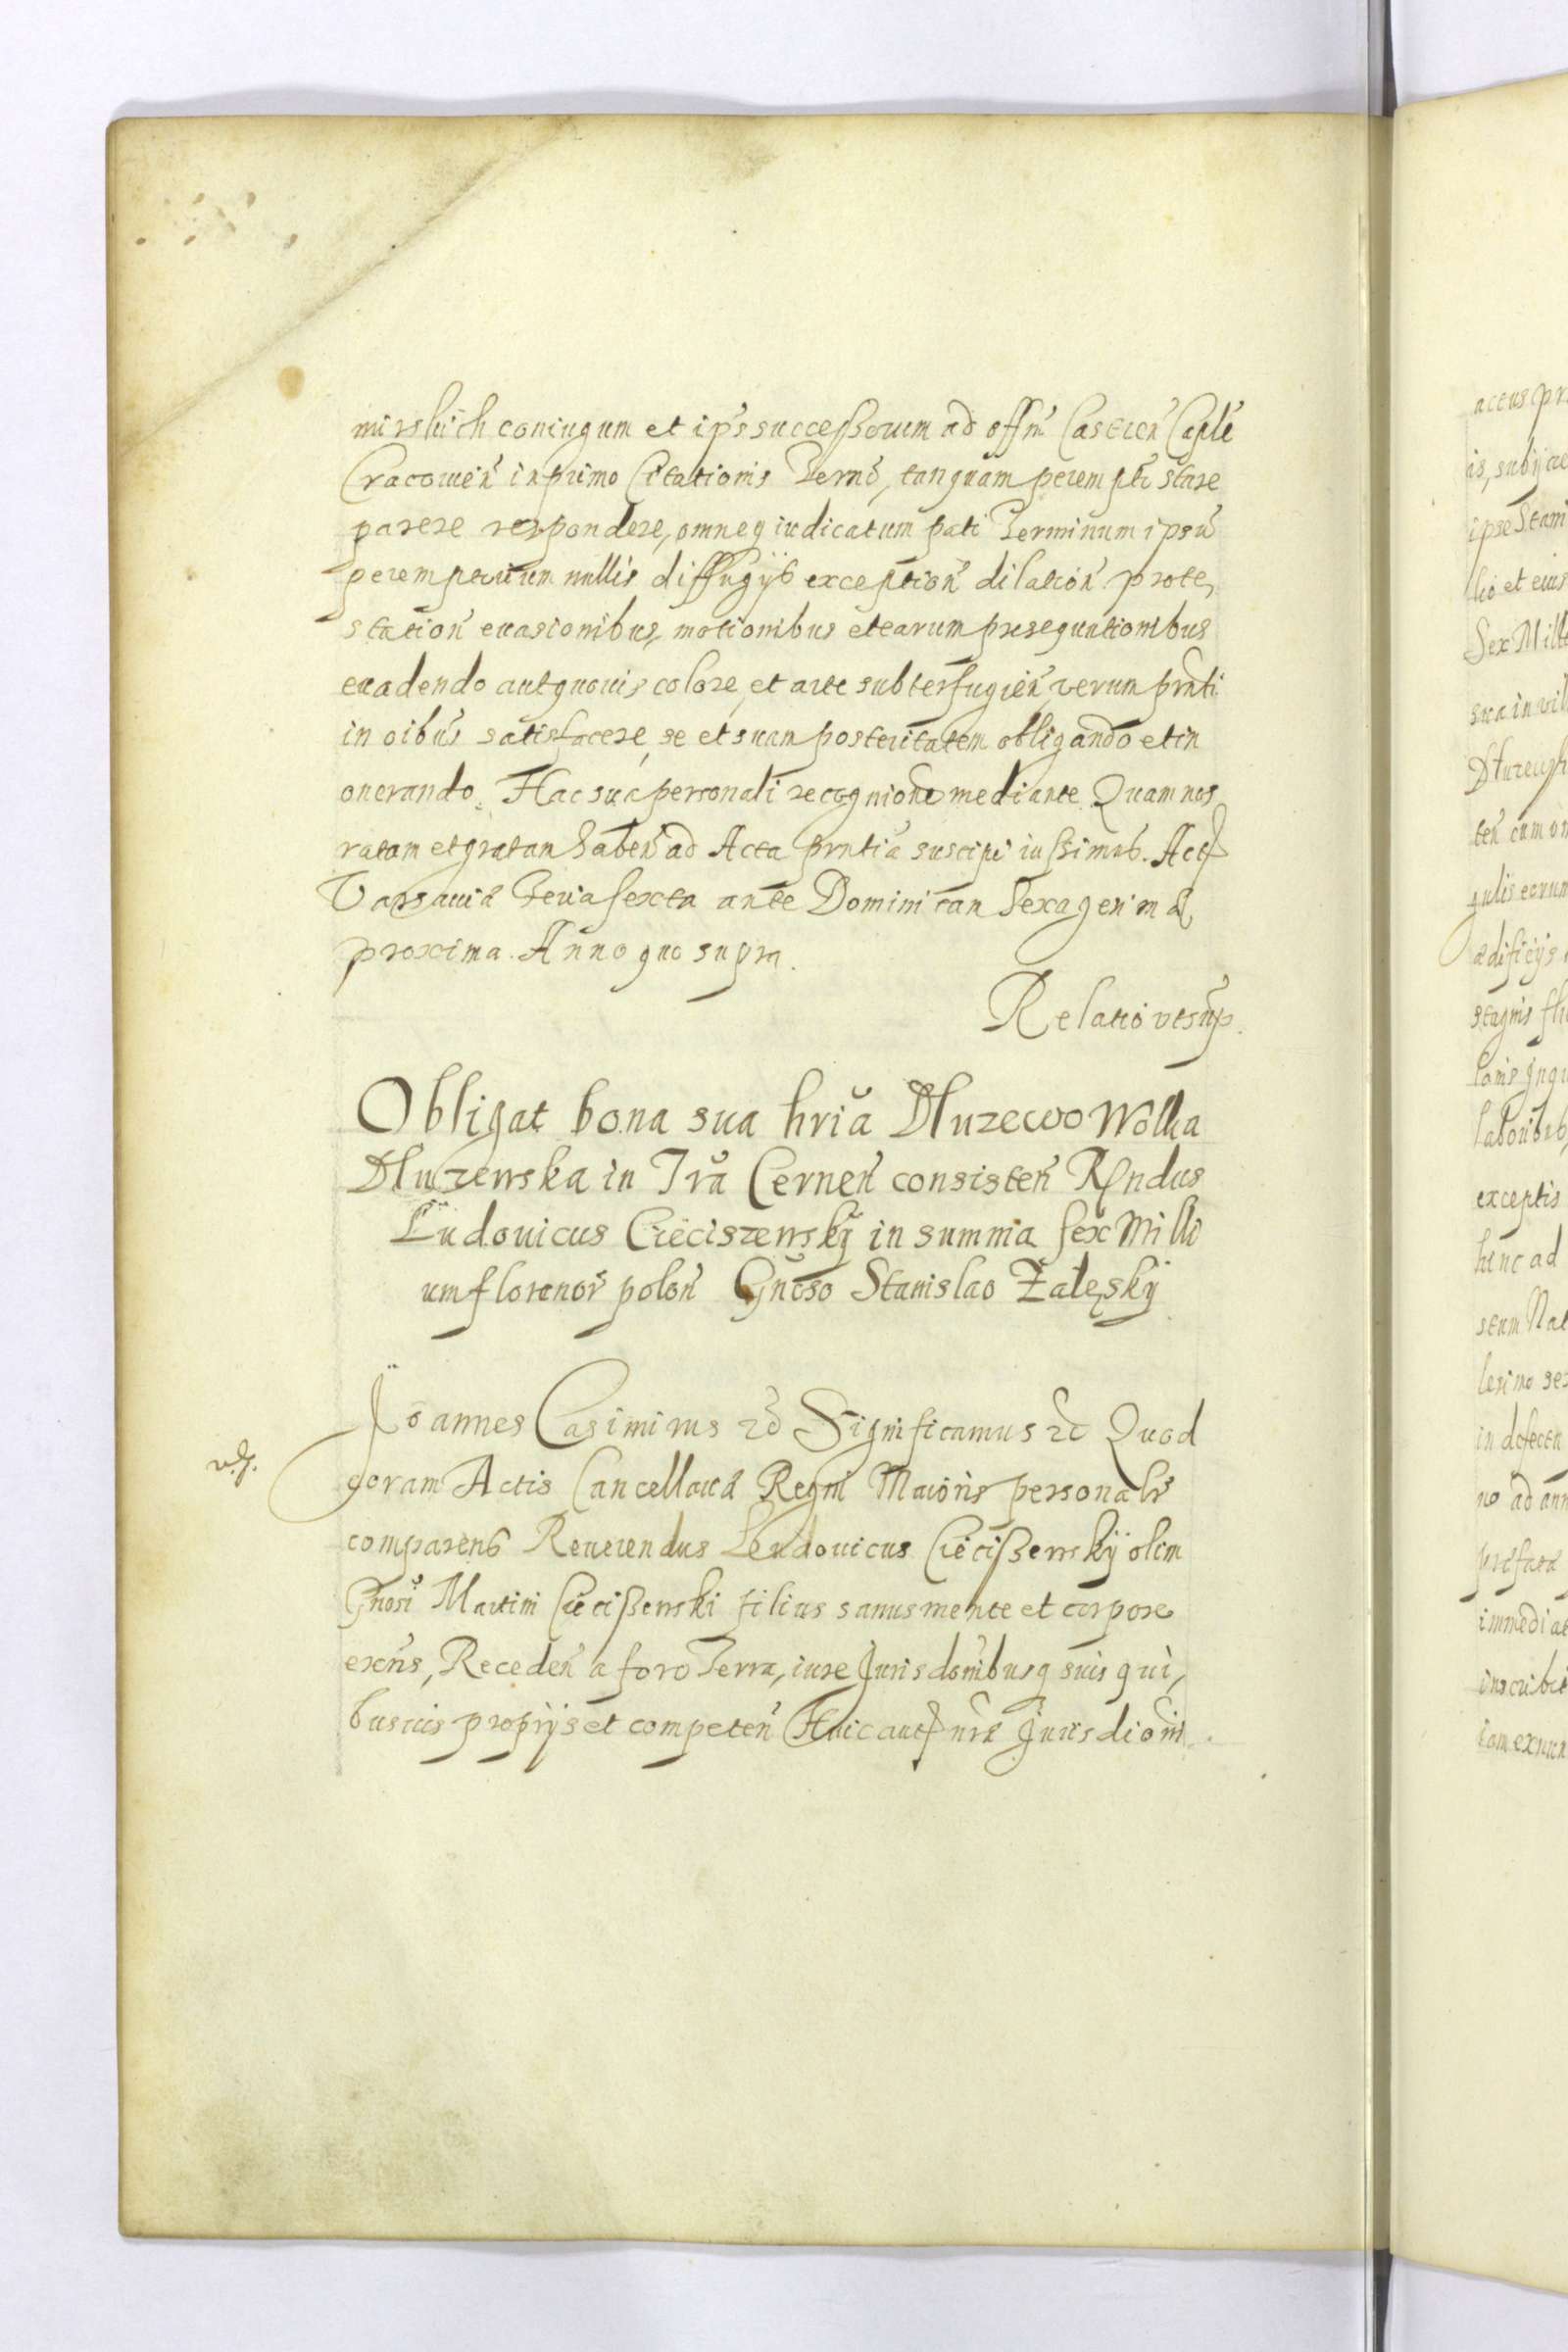 mirskich coniugum et ips successorum ad offm Castren Caplē
Cracouień in primo Citationis Termō, tanquam peremptō stare
parere respondere, omneq iudicatum pati Terminum ipsū
peremptorium nullis diffugijs exception dilation prote,
station euasionibus, motionibus et earum prosequutionibus
euadendo aut quouis colore, et arte subterfugień, verum prnti
in oibus satisfacere, se et suam posteritatem obligando et in
onerando. Hac sua personali recognione mediante Quam nos
ratam et gratam haben ad Acta prntia suscipi iussimus. Act
Varsauiæ Feria sexta ante Dominicam Sexagesimæ
proxima. Anno quo supra.
Relatio vt sup.
Obligat bona sua hria Dłuzewo Wolka
Dłuzewska in Tra Cernen consisten Rndus
Ludouicus Cieciszewsky in summa sex Milli
um florenor polon Gnoso Stanislao Zalęsky
Joannes Casimirus etc Significamus etc Quod
v.s.
coram Actis Cancellariæ Regni Maioris personalr
comparens Reuerendus Ludouicus Ciecißewskÿ olim
Gnosi Martini Ciecißewski filius sanus mente et corpore
exens, Receden a foro Terra, iure Jurisdonibusq suis qui,
busuis proprijs et competen Huic aut nræ Jurisdioni
actus pr
is, subijcie
ipse Stani
lio et eius
Sex Mille
sua in vil
Dłuzewsk
ten cum om
gulis eorum
ædificijs
stagnis flu
laboribus
exceptis
hinc ad
in defectu
no ad ann
præfata
immediat
inscribit